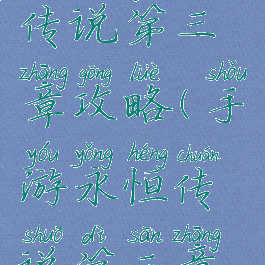 传说第三
zhāng gōng lüè shǒu
章攻略(手
yóu yǒng héng chuán
游永恒传
shuō dì sān zhāng
说第三章